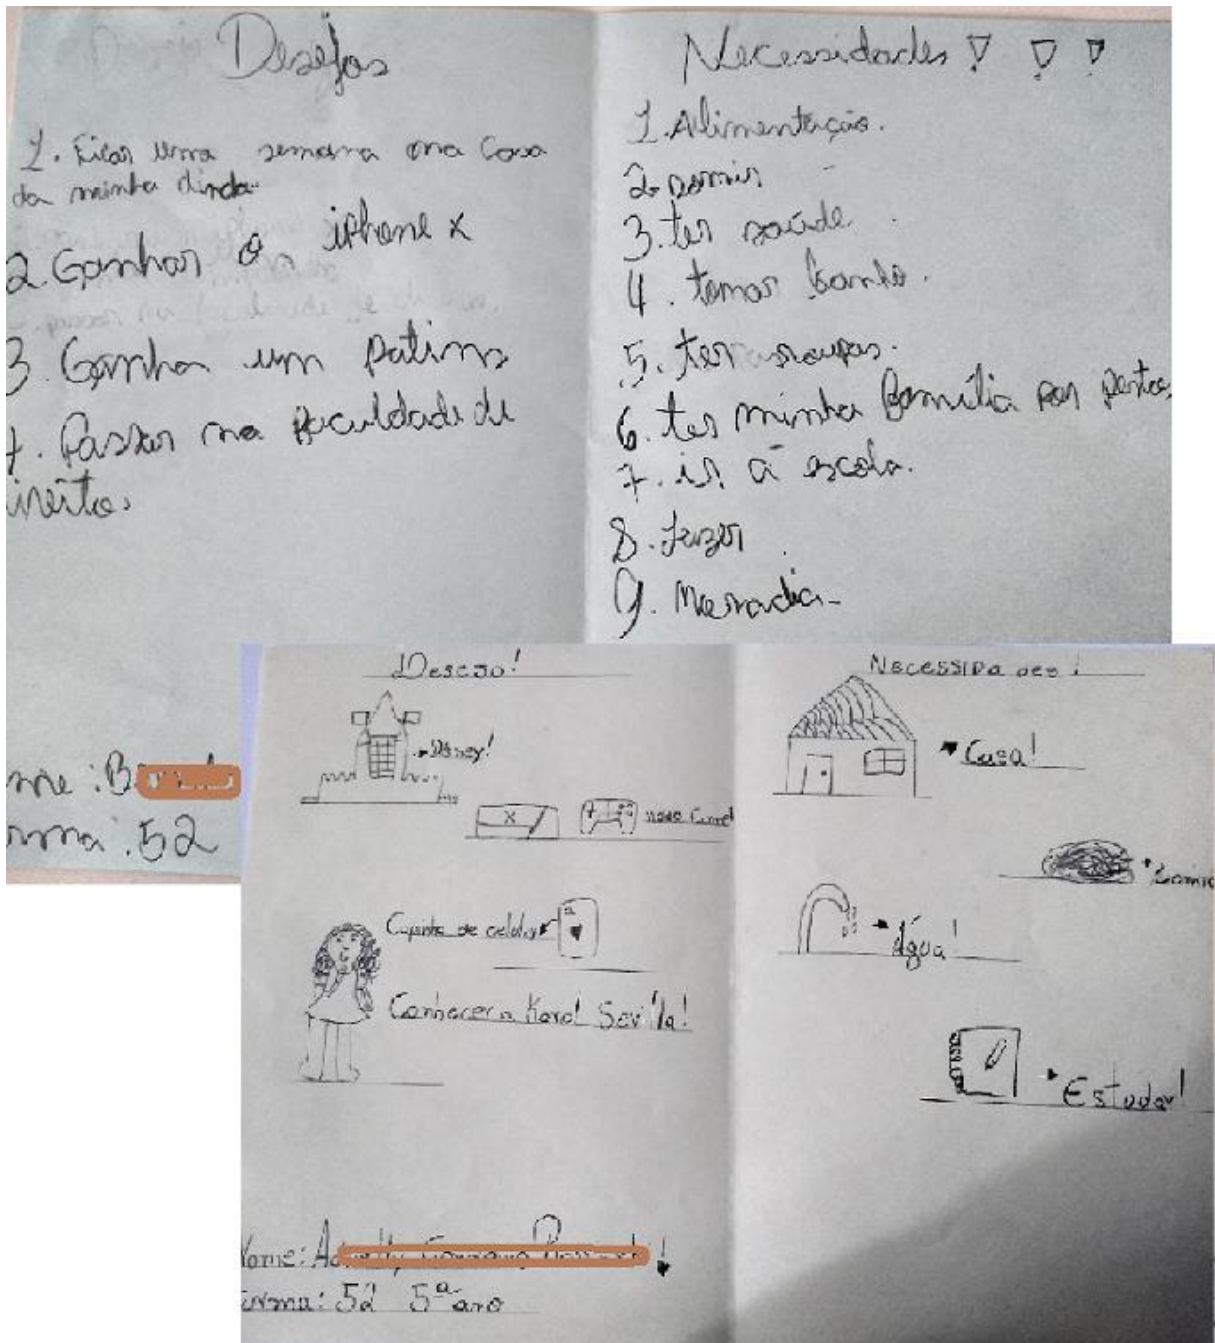 Desejos
1. Ficar uma semana na Casa
da minha dinda
2. Ganhar o iphone X
3. Ganha um Patins
Passar na faculdade de
Necessidades !!!
1. Alimentação.
2. Dormir
3. ter saúde.
4. tomar banho.
5. ter roupas.
6. ter minha família por perto.
7. ir à escola.
8. Lazer
9. Moradia
52
Desejo!
Disney!
X
Capinha de celular
Conhecer a Karol Sevilla!
Necessidades!
Casa!
Água!
Estudar!
Nome:
52 5º ano